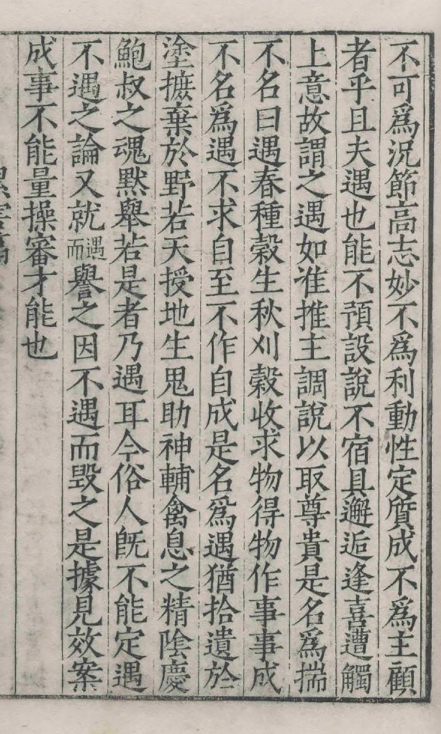 不可為況節高志妙不為利動性定質成不為主顧
者乎且夫遇也能不預設說不宿具邂逅逢喜遭觸
上意故謂之遇如准推主調說以取尊貴是名為揣
不名曰遇春種穀生秋刈穀收求物得物作事事成
不名為遇不求自至不作自成是名為遇猶拾遺於
塗摭棄於野若天授地生鬼助神輔禽息之精陰慶
鮑叔之魂默舉若是者乃遇耳今俗人旣不能定遇
不遇之論又就遇而譽之因不遇而毀之是據見效案
成事不能量操審才能也